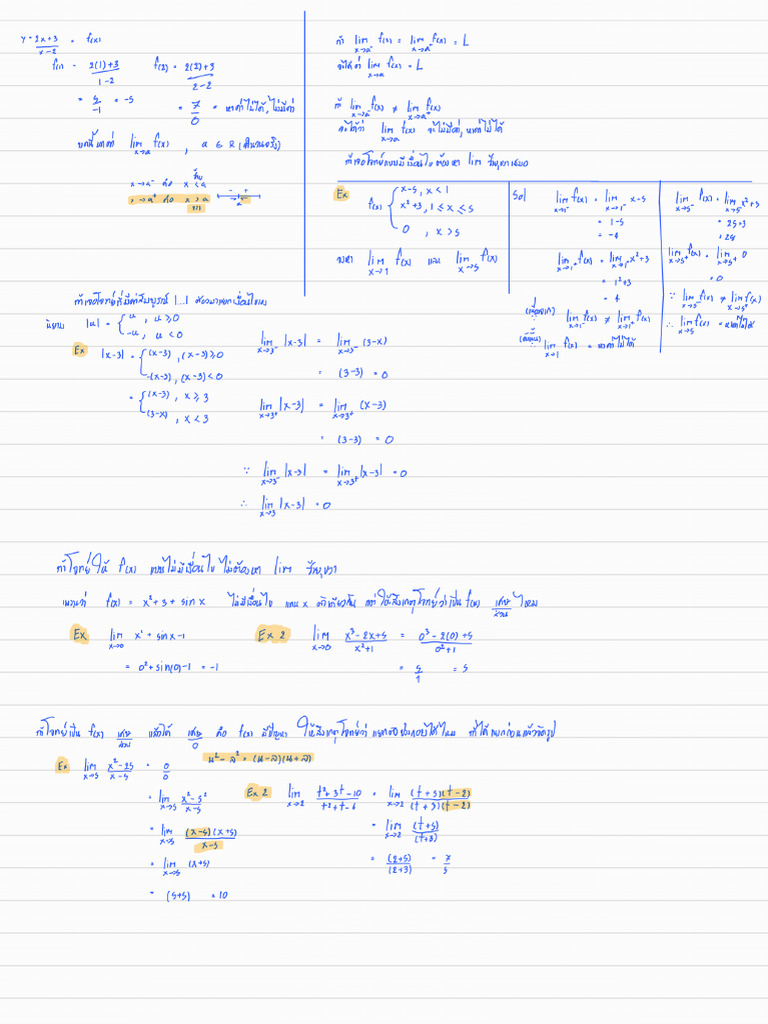 y = 2x+3 / x-2 = f(x)
f(1) = 2(1)+3 / 1-2   f(2) = 2(2)+3 / 2-2
= 5/-1 = -5   = 7/0 = หาค่าไม่ได้, ไม่มีค่า
บทนี้หาค่า lim x→a f(x) , a ∈ R (จำนวนจริง)
x → a⁻ คือ x < a
x → a⁺ คือ x > a
ถ้า lim x→a⁻ f(x) = lim x→a⁺ f(x) = L
จะได้ว่า lim x→a f(x) = L
ถ้า lim x→a⁻ f(x) ≠ lim x→a⁺ f(x)
จะได้ว่า lim x→a f(x) จะไม่มีค่า, หาค่าไม่ได้
ถ้าเจอโจทย์แบบมีเงื่อนไข ต้องหา lim เสมอ
Ex f(x) { x-5, x < 1
x²+3, 1 ≤ x ≤ 5
0 , x > 5
จงหา lim x→1 f(x) และ lim x→5 f(x)
Sol lim x→1⁻ f(x) = lim x→1⁻ x-5
= 1-5
= -4
lim x→1⁺ f(x) = lim x→1⁺ x²+3
= 1²+3
= 4
(เนื่องจาก) ∵ lim x→1⁻ f(x) ≠ lim x→1⁺ f(x)
(ดังนั้น) ∴ lim x→1 f(x) = หาค่าไม่ได้
lim x→5⁻ f(x) = lim x→5⁻ x²+3
= 25+3
= 28
lim x→5⁺ f(x) = lim x→5⁺ 0
= 0
∵ lim x→5⁻ f(x) ≠ lim x→5⁺ f(x)
∴ lim x→5 f(x) = หาค่าไม่ได้
ถ้าเจอโจทย์ที่มีค่าสัมบูรณ์ |...| ต้องมาแยกเงื่อนไข
นิยาม |u| = { u , u ≥ 0
-u , u < 0
Ex |x-3| = { (x-3) , (x-3) ≥ 0
-(x-3), (x-3) < 0
= { (x-3) , x ≥ 3
(3-x) , x < 3
lim x→3⁻ |x-3| = lim x→3⁻ (3-x)
= (3-3) = 0
lim x→3⁺ |x-3| = lim x→3⁺ (x-3)
= (3-3) = 0
∵ lim x→3⁻ |x-3| = lim x→3⁺ |x-3| = 0
∴ lim x→3 |x-3| = 0
ถ้าโจทย์ให้ f(x) แบบไม่มีเงื่อนไข ไม่ต้องหา lim
f(x) = x²+3+sin x ไม่มีเงื่อนไข แทน x ค่าเดียวกัน แต่ให้สังเกตุโจทย์ว่าเป็น f(x) เศษ/ส่วน ไหม
Ex lim x→0 x²+sin x-1
= 0²+sin(0)-1 = -1
Ex 2 lim x→0 x³-2x+5 / x²+1 = 0³-2(0)+5 / 0²+1
= 5/1 = 5
ถ้าโจทย์เป็น f(x) เศษ/ส่วน แล้วได้ เศษ/0 คือ f(x) มีปัญหา ให้สังเกตุโจทย์ว่าแยกตัวประกอบได้ไหม
u²-a² = (u-a)(u+a)
Ex lim x→5 x²-25 / x-5 = 0/0
= lim x→5 x²-5² / x-5
= lim x→5 (x-5)(x+5) / x-5
= lim x→5 (x+5)
= (5+5) = 10
Ex 2 lim x→2 t²+3t-10 / t²+t-6 = lim x→2 (t+5)(t-2) / (t+3)(t-2)
= lim x→2 (t+5) / (t+3)
= (2+5) / (2+3) = 7/5